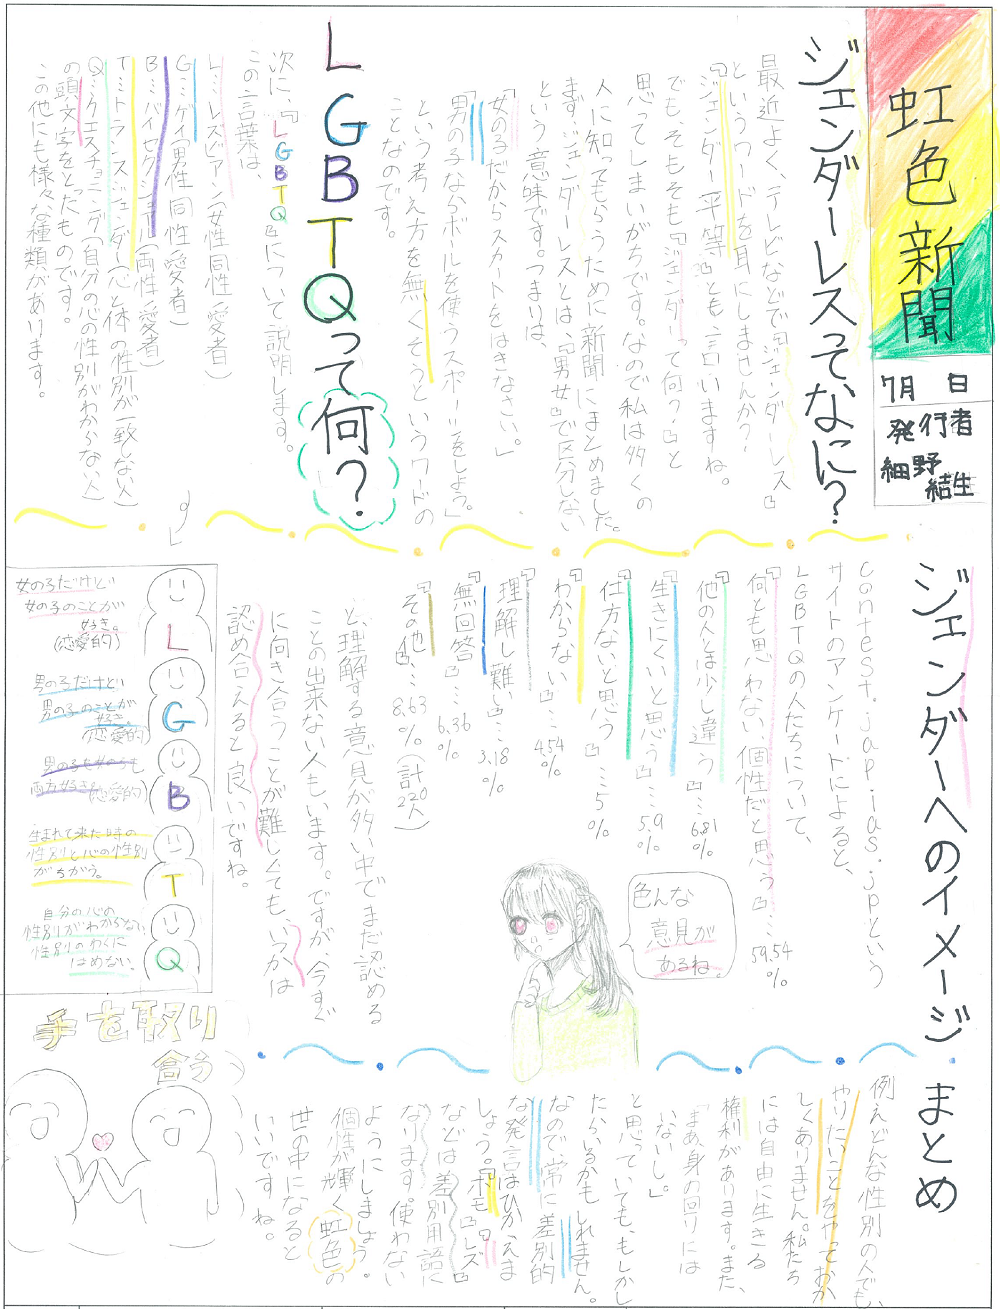 虹色新聞
7月 日
発行者
細野
結生
ジェンダーレスってなに?
最近よく、テレビなどで『ジェンダーレス』
というワードを耳にしませんか?
『ジェンダー平等』とも言いますね。
でも、そもそも『ジェンダーって何?』と
思ってしまいがちです。なので私は多くの
人に知ってもらうために新聞にまとめました。
まず、ジェンダーレスとは、「男女」で区分しない
という意味です。つまりは、
「女の子だからスカートをはきなさい。」
「男の子ならボールを使うスポーツをしよう。」
という考え方を無くそうというワードの
ことなのです。
LGBTQって何?
次に、『LGBTQ』について説明します。
この言葉は、
L…レズビアン(女性同性愛者)
G…ゲイ(男性同性愛者)
B…バイセクシュアル(両性愛者)
T…トランスジェンダー(心と体の性別が一致しない人)
Q…クエスチョニング(自分の心の性別がわからない人)
の頭文字をとったものです。
この他にも様々な種類があります。
ジェンダーへのイメージ
contest.jap.ias.jpという
サイトのアンケートによると、
LGBTQの人たちについて、
『何とも思わない、個性だと思う』…59.54%
『他の人とは少し違う』…6.81%
『生きにくいと思う』…5.9%
『仕方ないと思う』…5%
『わからない』…4.54%
『理解し難い』…3.18%
『無回答』…6.36%
『その他』…8.63%(計220人)
と、理解する意見が多い中でまだ認める
ことの出来ない人もいます。ですが、今すぐ
に向き合うことが難しくても、いつかは
認め合えると良いですね。
色んな
意見が
あるね。
女の子だけど
女の子のことが
好き。
(恋愛的)
L
男の子だけど
男の子のことが
好き。
(恋愛的)
G
男の子も女の子も
両方好き。(恋愛的)
B
生まれて来た時の
性別と心の性別
がちがう。
T
自分の心の
性別がわからない。
性別のわくに
はめない。
Q
手を取り
合う
まとめ
例えどんな性別の人でも、
やりたいことをやっておか
しくありません。私たち
には自由に生きる
権利があります。また、
「まぁ身の回りには
いないし。」
と思っていても、もしかし
たらいるかもしれません。
なので、常に差別的
な発言はひかえま
しょう。『ホモ』『レズ』
などは差別用語に
なります。使わない
ようにしましょう。
個性が輝く虹色の
世の中になると
いいですね。